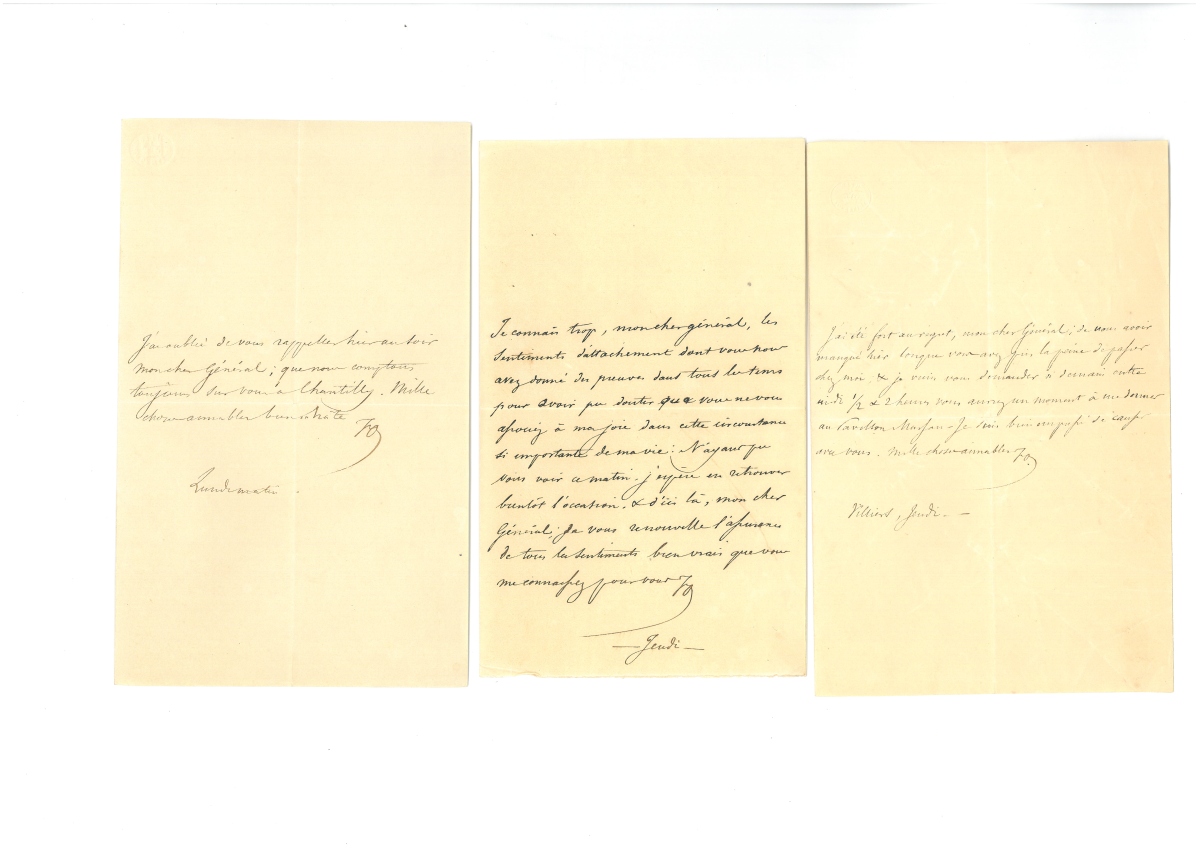 J'ai oublié de vous rappeller hier au soir
mon cher Général ; que nous comptons
toujours sur vous à Chantilly. Mille
choses aimables bien en hâte
FO
Lundi matin
Je connais trop, mon cher général, les
sentiments d'attachement dont vous nous
avez donné des preuves dans tous les tems
pour avoir pu douter que vous ne vous
associez à ma joie dans cette circonstance
si importante de ma vie : N'ayant pu
vous voir ce matin. j'espère en retrouver
bientôt l'occasion. & d'ici là, mon cher
Général ; Je vous renouvelle l'assurance
de tous les sentiments bien vrais que vous
me connaissez pour vous FO
— Jeudi —
J'ai été fort au regret, mon cher Général ; de vous avoir
manqué hier lorsque vous avez pris la peine de passer
chez moi : & je viens vous demander si demain entre
midi 1/2 & 2 heures vous auriez un moment à me donner
au Pavillon Marsan - Je suis bien de causer
avec vous. Mille choses aimables FO.
Villiers, Jeudi. —